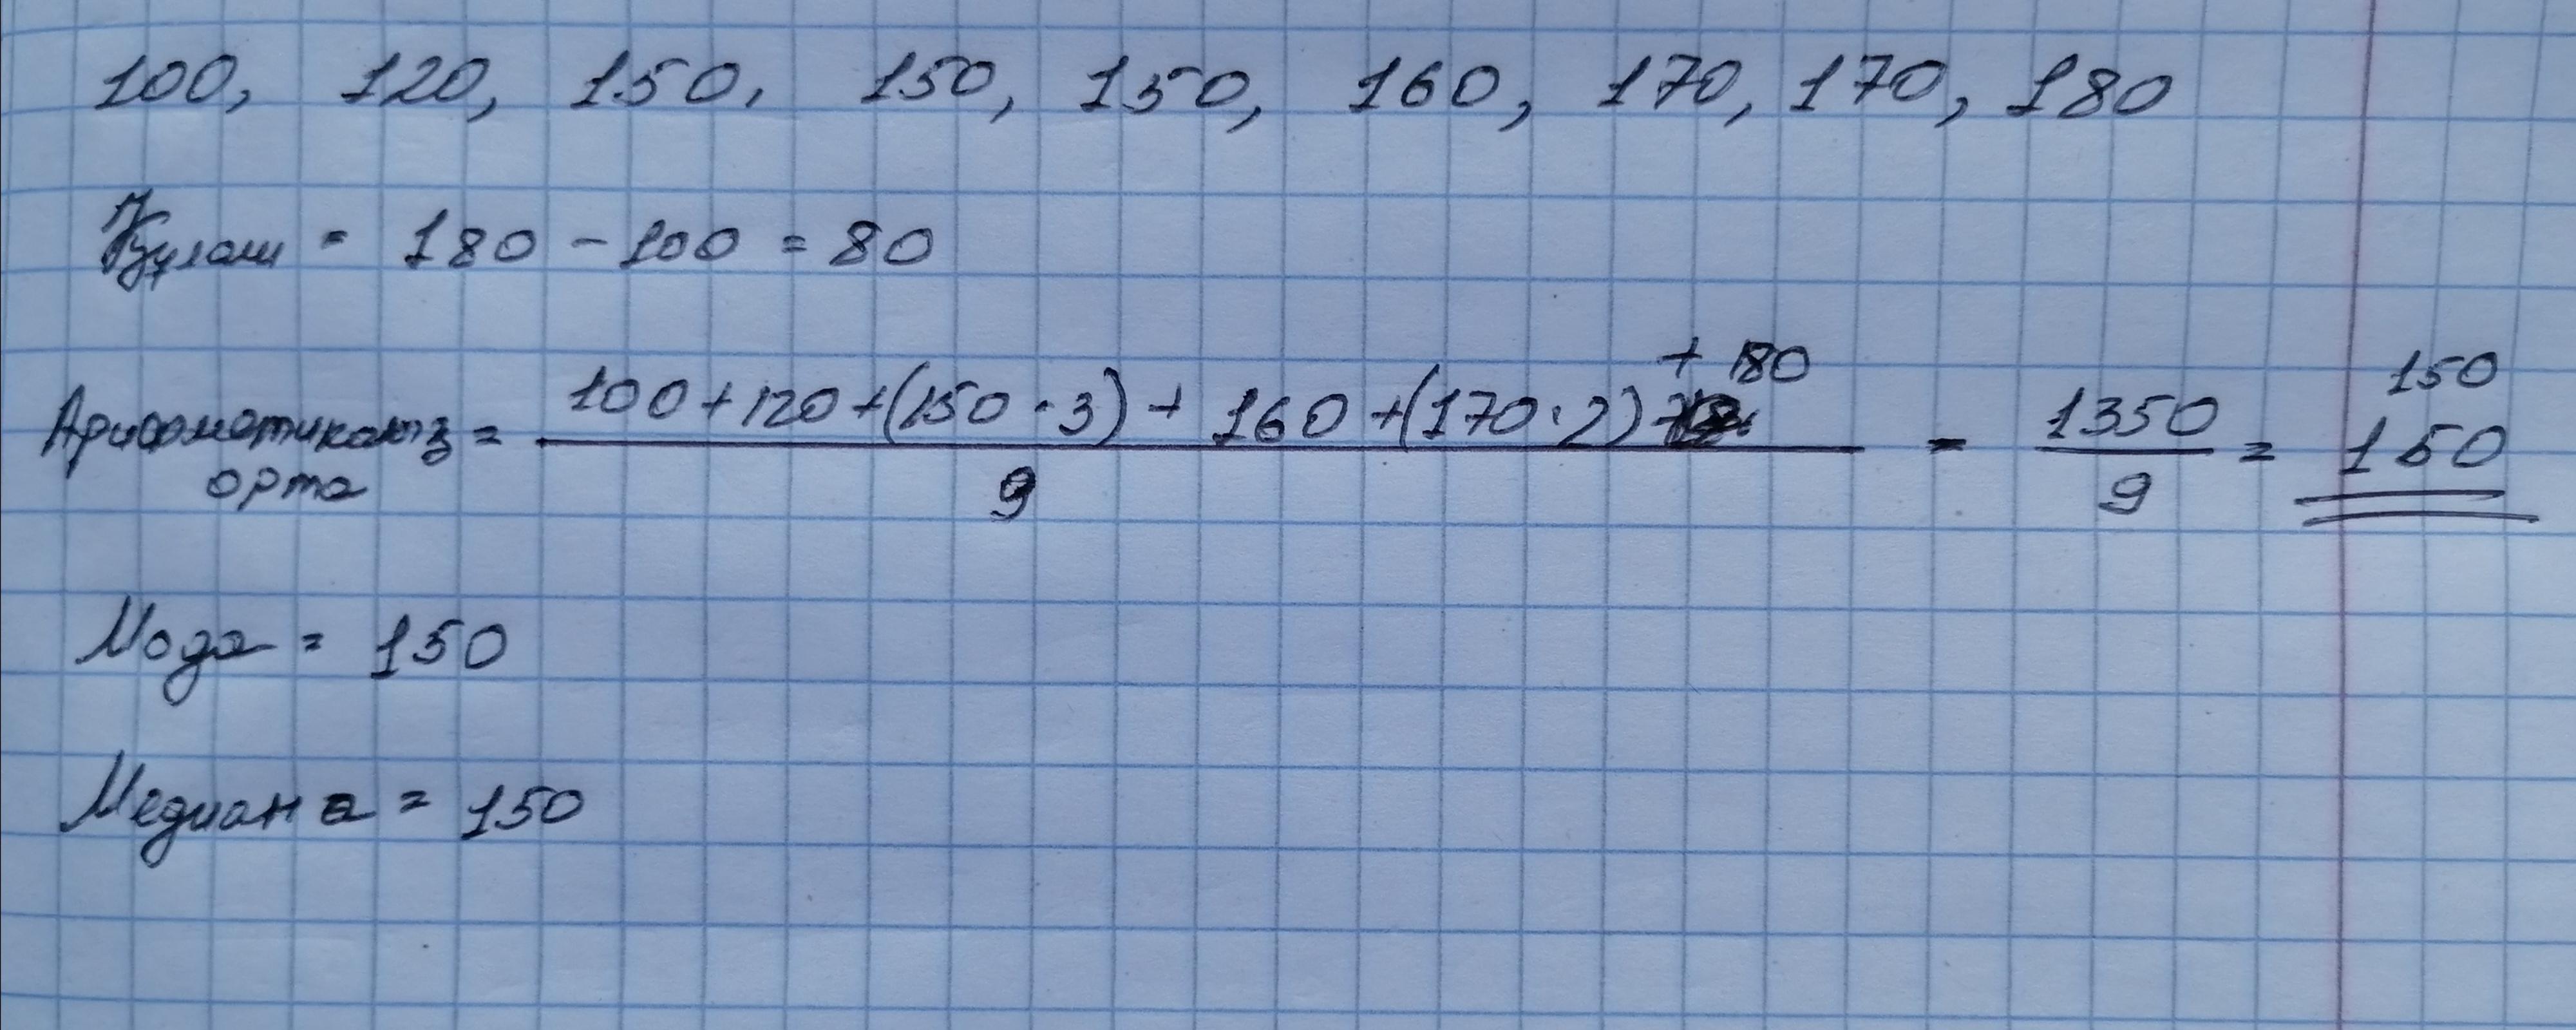 100, 120, 150, 150, 150, 160, 170, 170, 180
Құлаш = 180 - 100 = 80
+ 180
100 + 120 + (150 · 3) + 160 + (170 · 2)
150
Арифметикалық = 9 = 1350 / 9 = 150
орта
Мода = 150
Медиана = 150